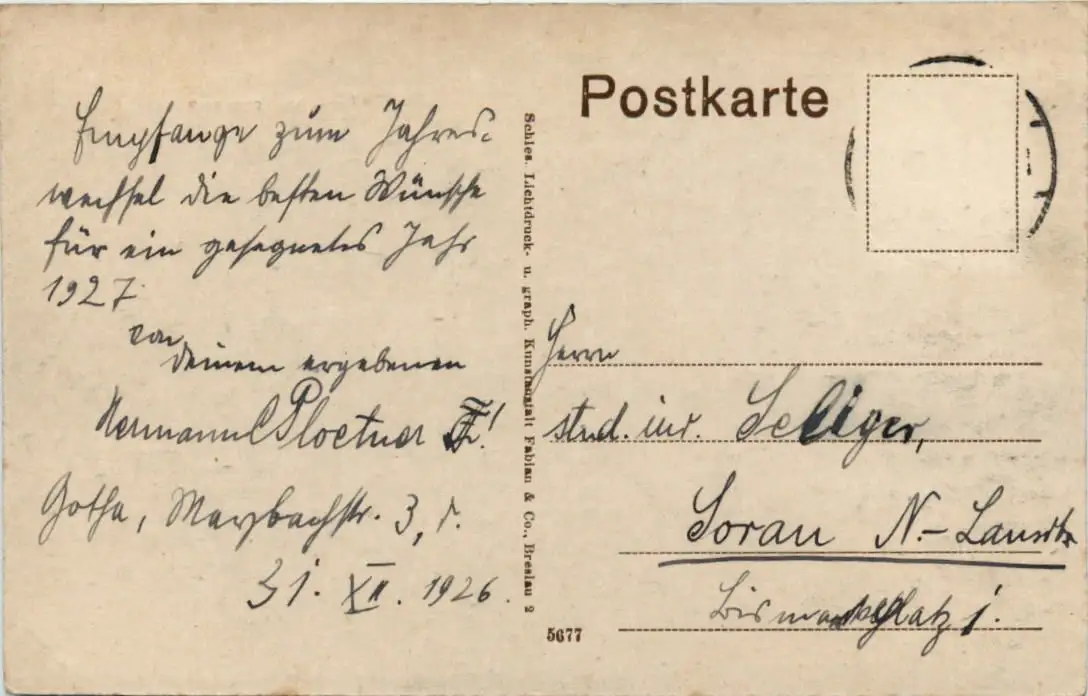 Empfange zum Jahres-
wechsel die besten Wünsche
für ein gesegnetes Jahr
1927
von
Deinem ergebenen
Hermann Ploetner
Gotha, Maybachstr. 3, r.
31. XII. 1926.
Schles. Lichtdruck- u. graph. Kunstanstalt Fabian & Co., Breslau 2
Postkarte
Herrn
stud. iur. Seliger,
Sorau N.-Lausitz
Bismarckplatz 1.
5677